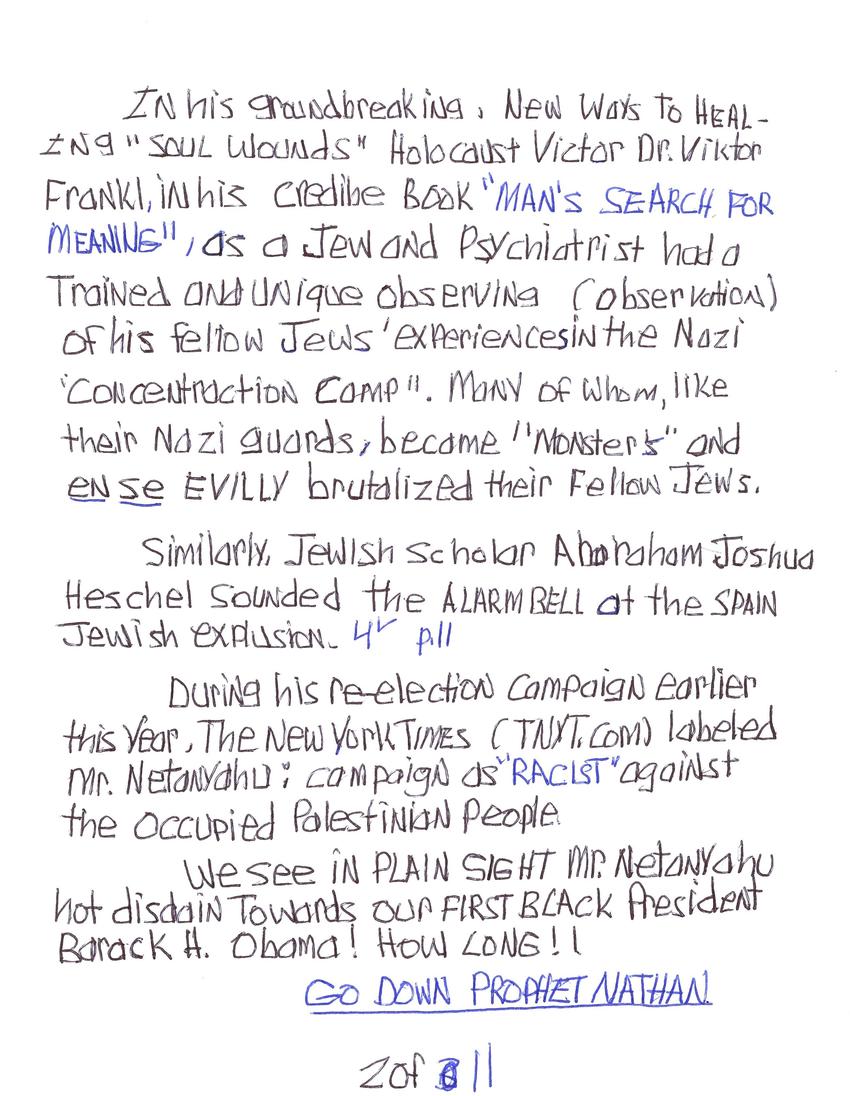 IN his groundbreaking, NEW Ways To HEAL-
ING "SOUL Wounds" Holocaust Victor Dr. Viktor
Frankl, iN his credibe Book "MAN'S SEARCH FOR
MEANING", as a Jew and Psychiatrist had a
Trained and UNique observing (observation)
of his fellow Jews 'experiences in the Nazi
'Concentraction Camp". Many of whom, like
their Nazi guards, became "Monsters" and
en se EVILLY brutalized their Fellow Jews.
Similarly, Jewish scholar Abraham Joshua
Heschel Sounded the ALARM BELL at the SPAIN
Jewish explusion. 4 p.11
During his re-election campaign earlier
this Year, The New York TIMES (TNYT.com) labeled
Mr. Netanyahu; campaign as "RACIST" against
the Occupied Palestinian People
We see iN PLAIN SIGHT Mr. Netanyahu
hot disdain Towards our FIRST BLACK President
Barack H. Obama! HOW LONG!!
GO DOWN PROPHET NATHAN.
2 of 11